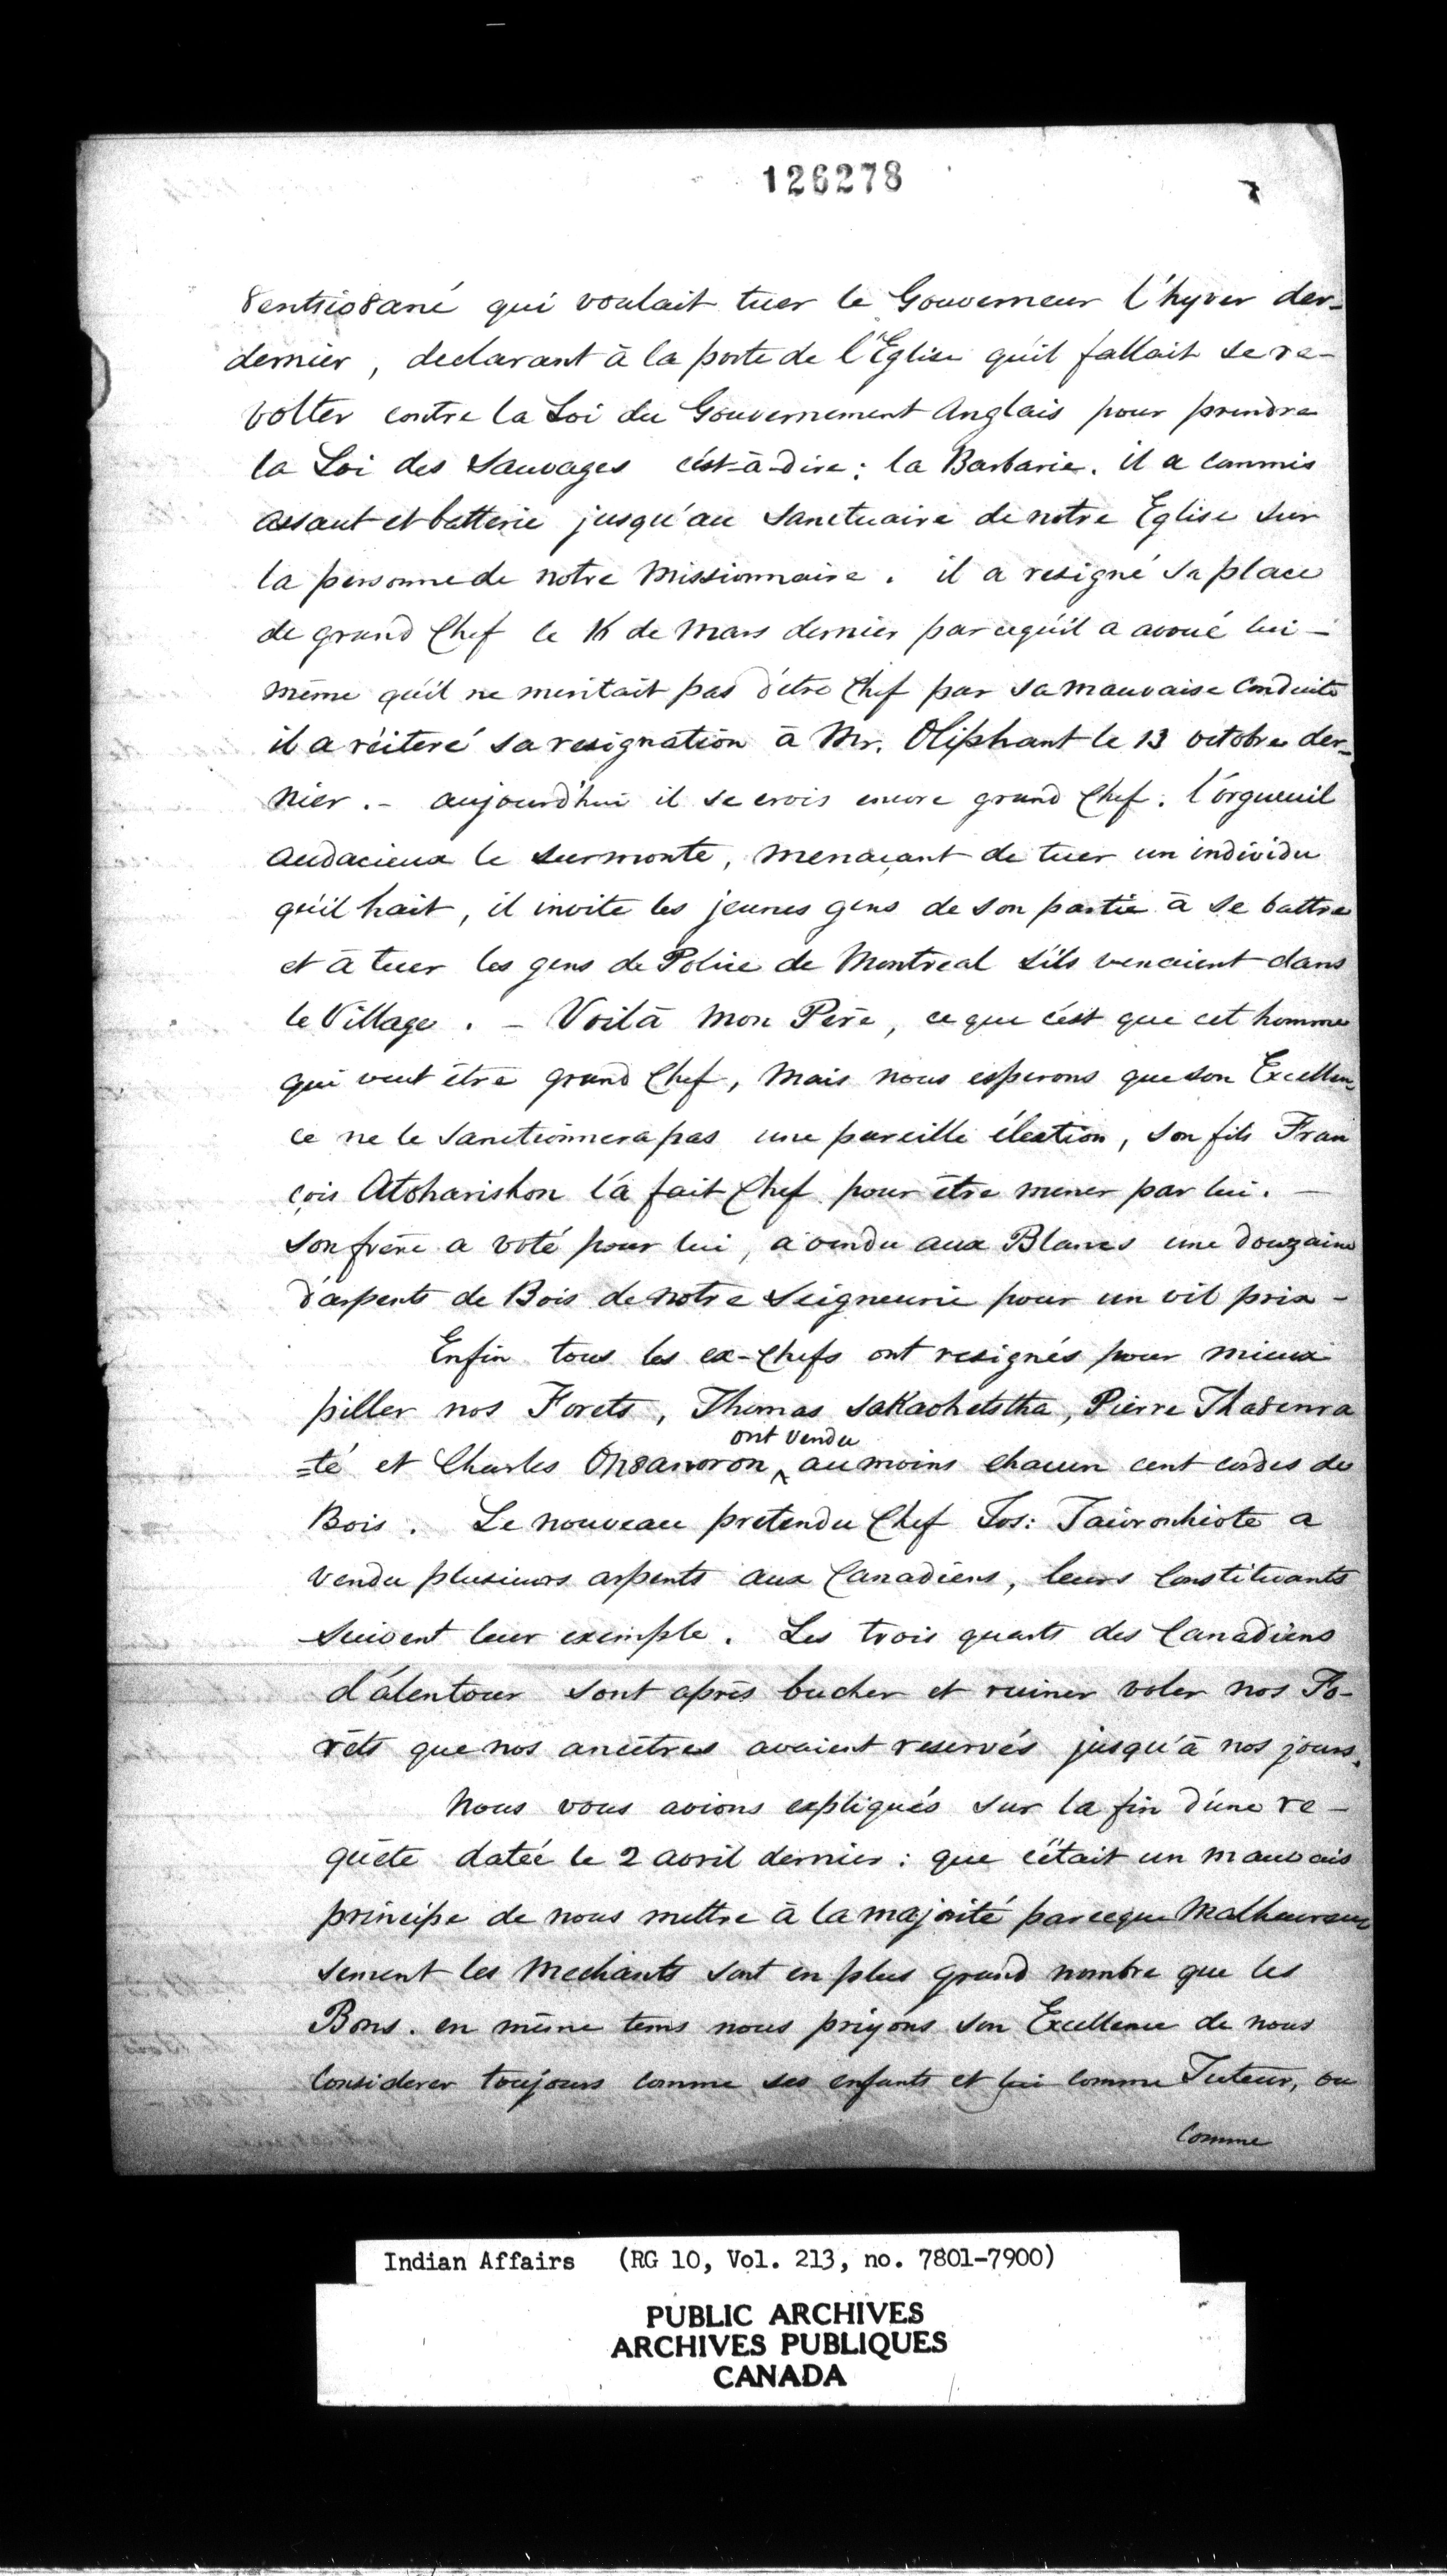 126278
8entsio8ané qui voulait tuer le Gouverneur l'hyver der-
dernier, declarant à la porte de l'Eglise qu'il fallait se re-
volter contre la Loi du Gouvernement Anglais pour prendre
la Loi des Sauvages c'est-à-dire: la Barbarie. il a commis
assaut et batterie jusqu'au Sanctuaire de notre Eglise sur
la personne de notre Missionnaire. il a resigné sa place
de grand Chef le de Mars dernier parcequ'il a avoué lui-
même qu'il ne meritait pas d'être Chef par sa mauvaise Conduite
il a réiteré sa resignation à Mr. Oliphant le 13 octobre der-
nier. - aujourd'hui il se crois encore grand Chef. l'orgueuil
audacieux le surmonte, menaçant de tuer un individu
qu'il hait, il invite les jeunes gens de son partie à se battre
et à tuer les gens de Police de Montreal s'ils venaient dans
le Village. - Voilà Mon Père, ce que c'est que cet homme
qui veut être grand Chef, Mais nous esperons que son Excellen
ce ne le Sanctionnera pas une pareille élection, son fils Fran
çois Atoharishon l'a fait Chef pour être mener par lui. -
son frère a voté pour lui, a vendu aux Blancs une douzaine
d'arpents de Bois de notre Seigneurie pour un vil prix -
Enfin tous les ex-Chefs ont resignés pour mieux
piller nos Forets, Thomas Sakaohetstha, Pierre Tha8enra
=té et Charles On8anoron ont vendu au moins chacun cent cordes de
Bois. Le nouveau pretendu Chef Jos: Taioronhiote a
vendu plusieurs arpents aux Canadiens, leurs Constituants
suivent leur exemple. Les trois quarts des Canadiens
d'alentour sont après bucher et ruiner voler nos Fo-
rêts que nos ancêtres avaient reservés jusqu'à nos jours.
Nous vous avions expliqués sur la fin d'une re-
quête datée le 2 avril dernier: que c'était un mauvais
principe de nous mettre à la majorité parceque Malheureu
sement les Mechants sont en plus grand nombre que les
Bons. en même tems nous priyons son Excellence de nous
Considerer toujours comme ses enfants et lui comme Tuteur, ou
Comme
Indian Affairs (RG 10, Vol. 213, no. 7801-7900)
PUBLIC ARCHIVES
ARCHIVES PUBLIQUES
CANADA